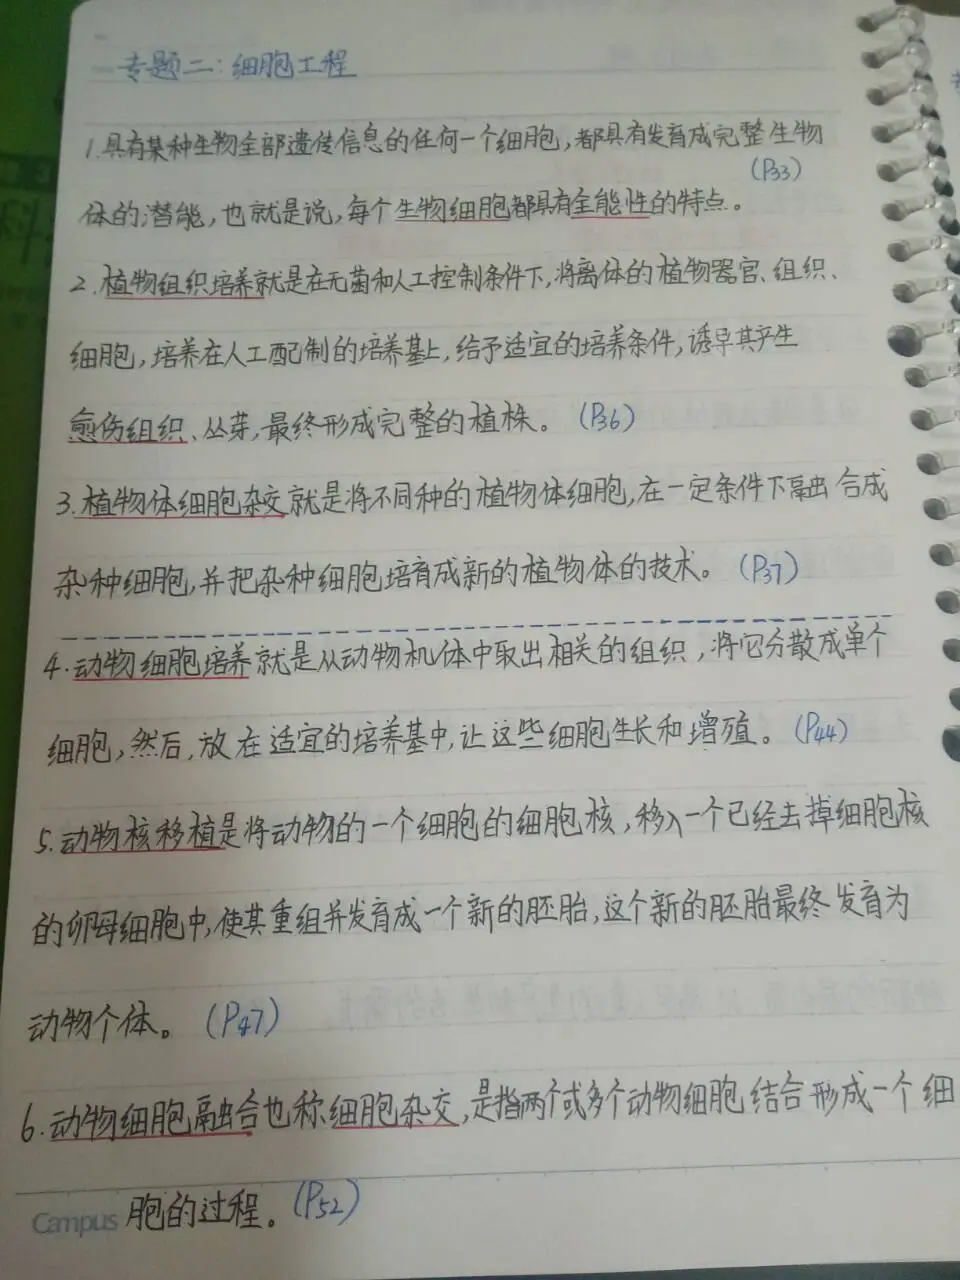 专题二：细胞工程
1.具有某种生物全部遗传信息的任何一个细胞，都具有发育成完整生物
(P33)
体的潜能，也就是说，每个生物细胞都具有全能性的特点。
2.植物组织培养就是在无菌和人工控制条件下，将离体的植物器官、组织、
细胞，培养在人工配制的培养基上，给予适宜的培养条件，诱导其产生
愈伤组织、丛芽，最终形成完整的植株。(P36)
3.植物体细胞杂交就是将不同种的植物体细胞，在一定条件下融合成
杂种细胞，并把杂种细胞培育成新的植物体的技术。(P37)
4.动物细胞培养就是从动物机体中取出相关的组织，将它分散成单个
细胞，然后，放在适宜的培养基中，让这些细胞生长和增殖。(P44)
5.动物核移植是将动物的一个细胞的细胞核，移入一个已经去掉细胞核
的卵母细胞中，使其重组并发育成一个新的胚胎，这个新的胚胎最终发育为
动物个体。(P47)
6.动物细胞融合也称细胞杂交，是指两个或多个动物细胞结合形成一个细
Campus 胞的过程。(P52)